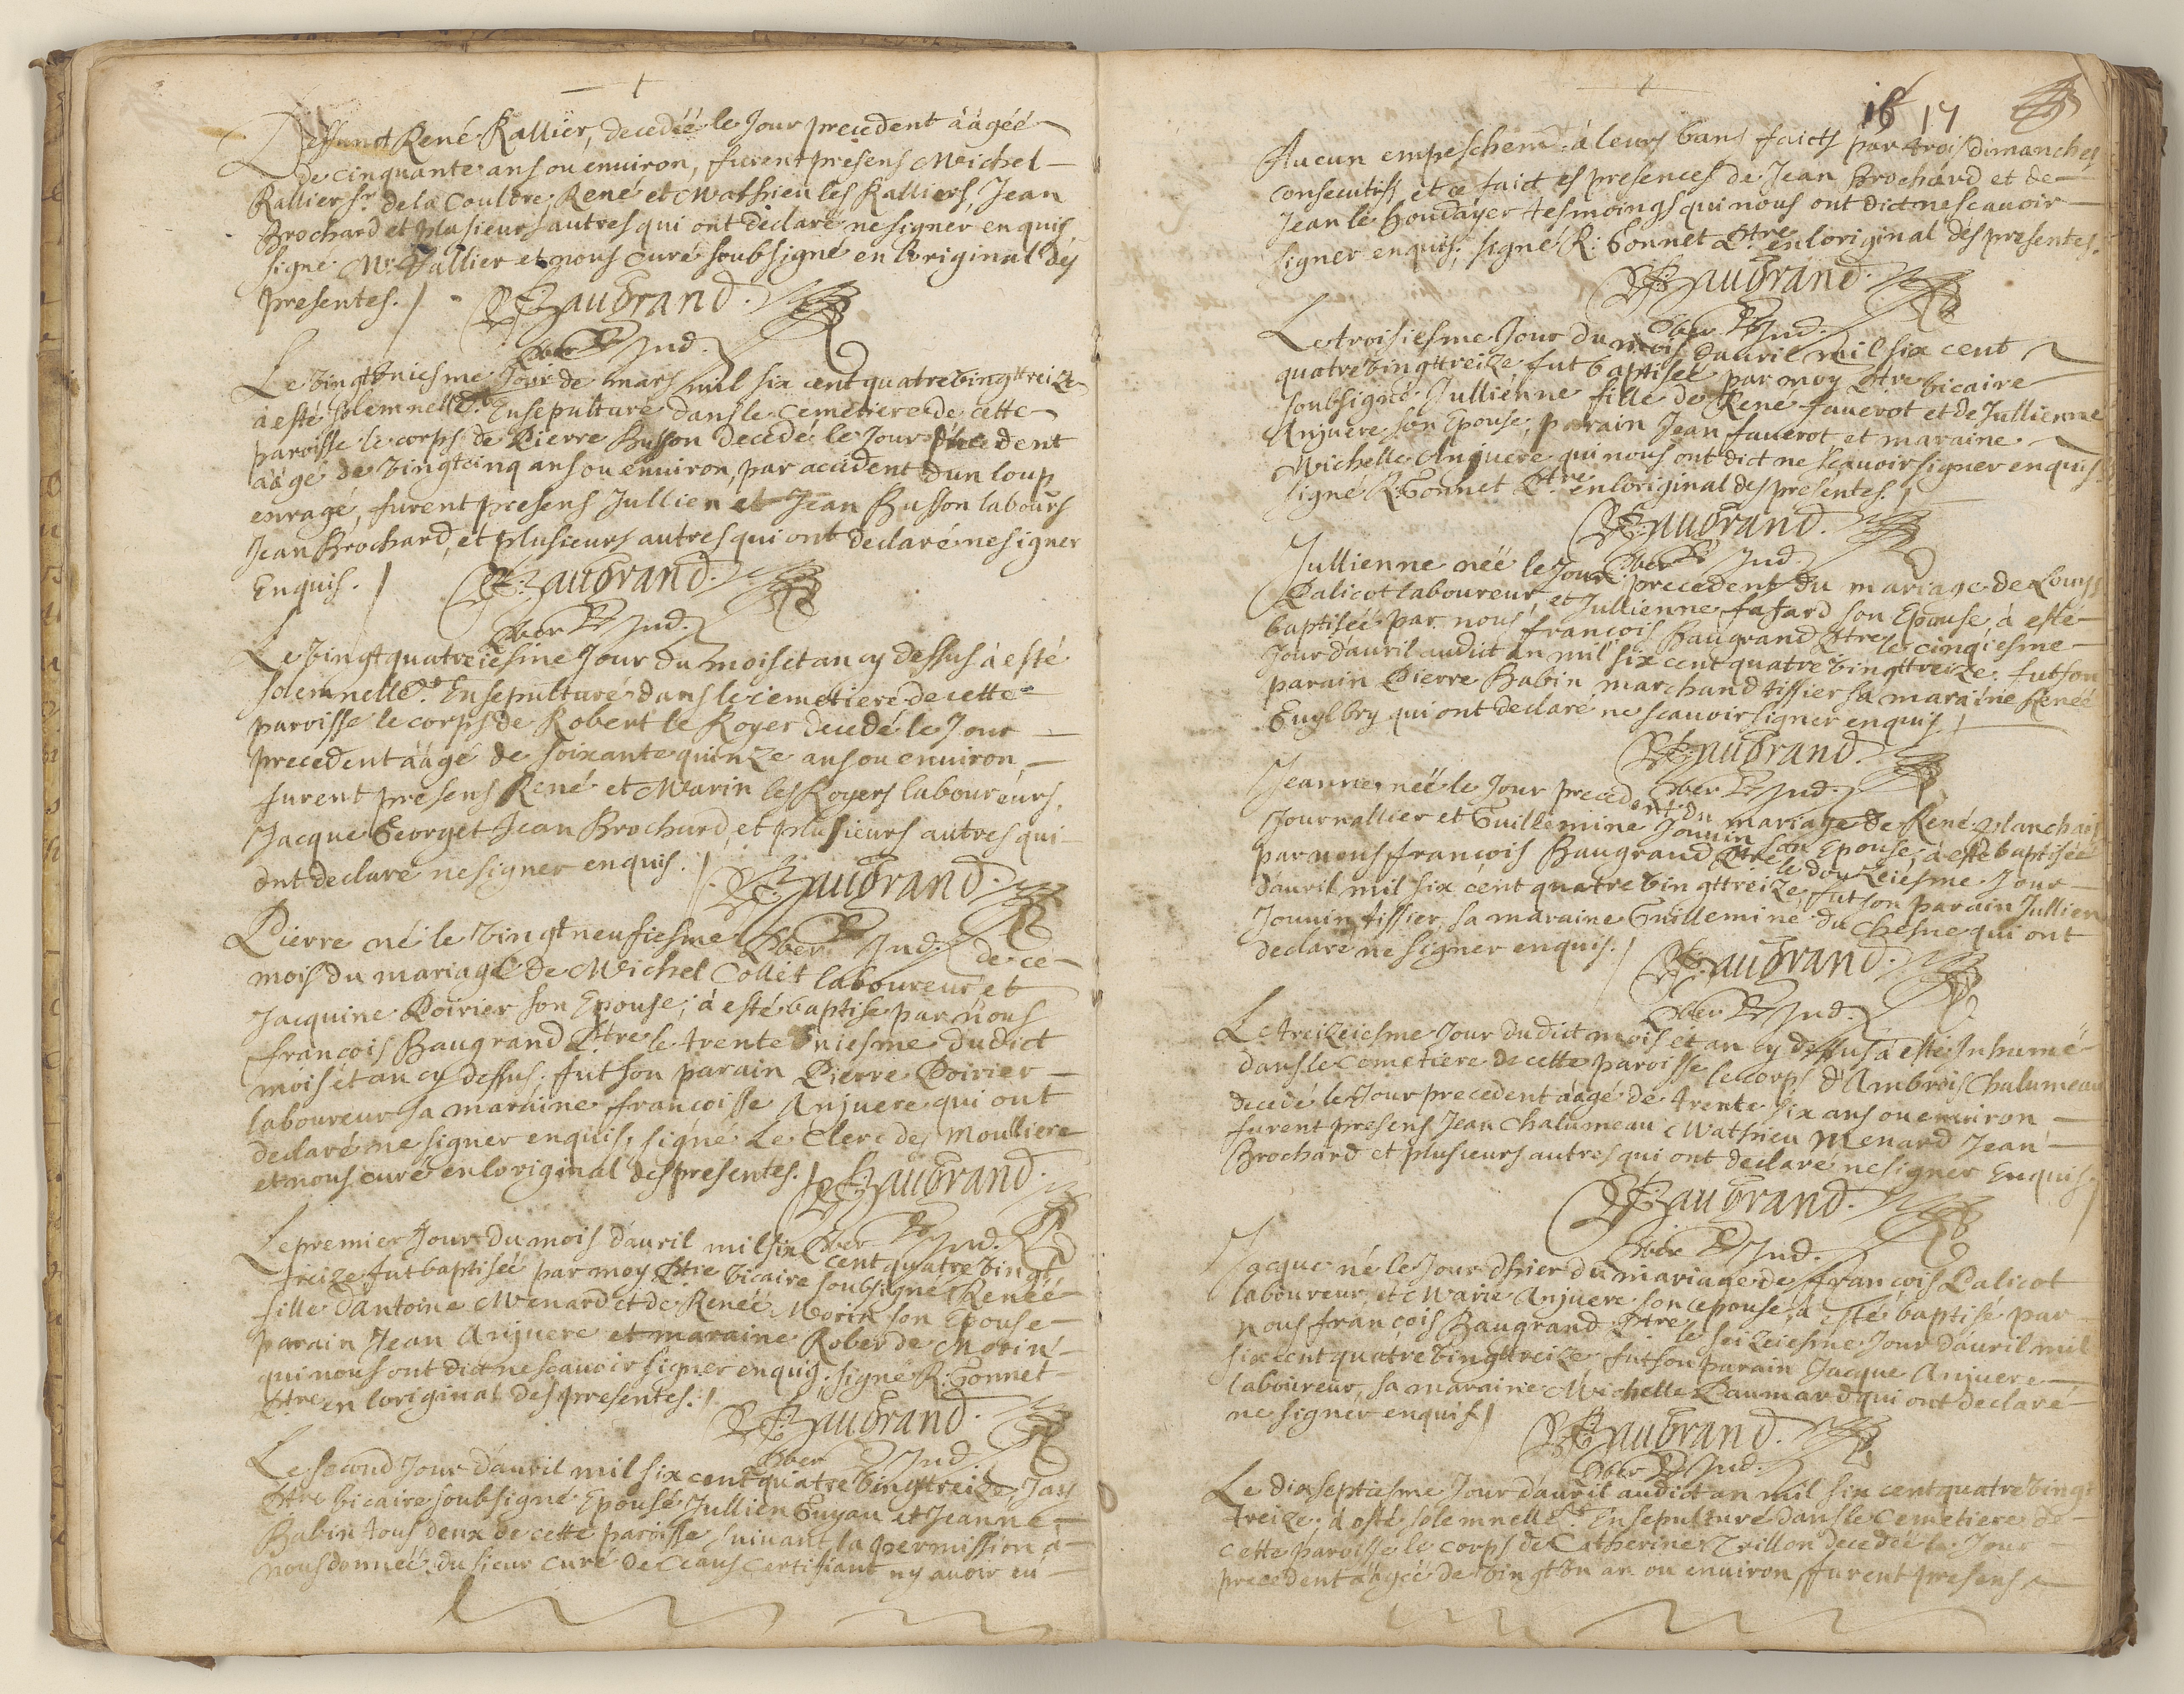 Deffunct René Rallier, decedéé le Jour precedent ââgéé
de cinquante ans ou enuiron, furent presens Michel
Rallier sr. de la Coultre, René et Mathieu les Ralliers, Jean
Brochard et plusieurs autres qui ont declaré ne signer enquis
signé Mr. Rallier et nous curé soubsigné en loriginal des
presentes.
F: Baugrand.
Le vingt vniesme Jour de mars mil six cent quatre vingt treize
à esté solemnellemt. Ensepulturé dans le cemetiere de cette
paroisse le corps de Pierre Busson decedé le Jour precedent
ââgé de vingt cinq ans ou enuiron, par accident dun loup
enragé, furent presens Jullien et Jean Busson labours
Jean Brochard, et plusieurs autres qui ont declaré ne signer
Enquis.
F: Baugrand.
Le vingt quatreiesme Jour du mois et an cy dessus à esté
solemnellemt. Ensepulturé dans le cemetiere de cette
paroisse le corps de Robert le Royer decedé le Jour
precedent ââgé de soixante quinze ans ou enuiron,
furent presens René et Marin les Royers laboureurs,
Jacque Georget Jean Brochard, et plusieurs autres qui
ont declaré ne signer enquis.
F: Baugrand.
Pierre né le vingt neufiesme de ce
mois du mariage de Michel Collet laboureur et
Jacquine Poirier son Epouse, à esté baptisé par nous
francois Baugrand Ptre le trente vniesme dudict
mois et an cy dessus, fut son parain Pierre Poirier
laboureur sa maraine francoisse Anjuere qui ont
declaré ne signer enquis, signé Le Clerc des Moulliere
et nous curé en loriginal des presentes.
F: Baugrand.
Le premier Jour du mois dauril mil six cent quatre vingt
treize fut baptiséé par moy Ptre vicaire soubsigné Renéé
fille dAntoine Menard et de Renéé Morin son Epouse
parain Jean Anjuere et maraine Roberde Morin
qui nous ont dict ne scauoir signer enquis, signé R: Gonnet
Ptre en loriginal des presentes.
F: Baugrand.
Le second Jour dauril mil six cent quatre vingt treize Jay
Ptre vicaire soubsigné Epousé Jullien Guyau et Jeanne
Babin tous deux de cette paroisse suiuant la permission a
nous donnéé du sieur curé de Ceans certifiant ny auoir eu
18 17
Aucun empeschemt. à leurs bans faicts par trois dimanches
consecutifs et ce faict es presences de Jean Brochard et de
Jean le houdayer tesmoings qui nous ont dict ne scauoir
signer enquis, signé R: Gonnet Ptre en loriginal des presentes.
F: Baugrand.
Le troisiesme Jour du mois dauril mil six cent
quatre vingt treize fut baptiséé par moy Ptre vicaire
soubsigné Jullienne fille de René fauerot et de Jullienne
Anjuere son Epouse, parain Jean fauerot et maraine
Michelle Anjuere qui nous ont dict ne scauoir signer enquis
signé R: Gonnet Ptre en loriginal des presentes.
F: Baugrand.
Jullienne néé le Jour precedent du mariage de Louys
Palicot laboureur et Jullienne fafard son Epouse à esté
baptiséé par nous francois Baugrand Ptre le cinqiesme
Jour dauril audict an mil six cent quatre vingt treize, fut son
parain Pierre Babin marchand tissier sa maraine Renéé
qui ont declaré ne scauoir signer enquis
F: Baugrand.
Jeanne néé le Jour precedent du mariage de René planchais
Journallier et Guillemine Jouuin son Epouse, à esté baptiséé
par nous francois Baugrand Ptre le douzeiesme Jour
dauril mil six cent quatre vingt treize, fut son parain Jullien
Jouuin tissier, sa maraine Guillemine du Chesne qui ont
declaré ne signer enquis.
F: Baugrand.
Le treizeiesme Jour dudict mois et an cy dessus à esté Inhumé
dans le cemetiere de cette paroisse le corps d'Ambrois Chalumeau
decedé le Jour precedent ââgé de trente six ans ou enuiron
furent presens Jean Chalumeau Mathieu Menard Jean
Brochard et plusieurs autres qui ont declaré ne signer Enquis.
F: Baugrand.
Jacque né le Jour dhier du mariage de francois Palicot
laboureur et Marie Anjuere son epouse, à esté baptisé par
nous francois Baugrand Ptre le seizeiesme Jour dauril mil
six cent quatre vingt treize fut son parain Jacque Anjuere
laboureur, sa maraine Michelle Paumard qui ont declaré
ne signer enquis
F: Baugrand.
Le dix septiesme Jour dauril audict an mil six cent quatre vingt
treize à esté solemnellemt. Ensepulturé dans le cemetiere de
cette paroisse le corps de Catherine Trillon decedéé le Jour
precedent ââgéé de vingt vn an ou enuiron, furent presens